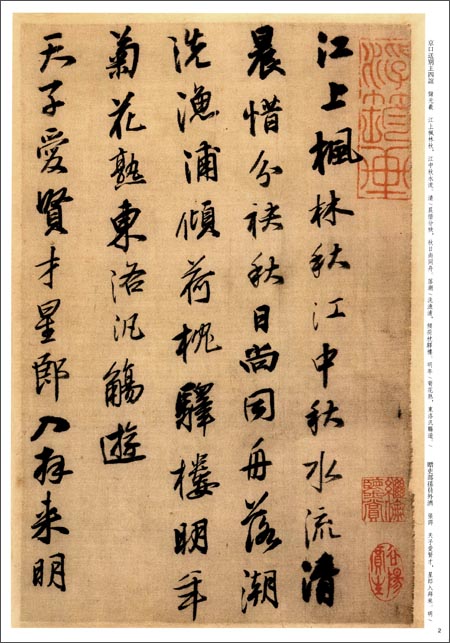 京口送別王四誼 儲光羲 江上楓林秋，江中秋水流。清\晨惜分袂，秋日尚同舟。落潮\洗漁浦，傾荷枕驛樓。明年\菊花熟，東洛汎觴遊。\ 贈吏部孫員外濟 張謂 天子愛賢才，星郎入拜來。明\
江上楓林秋江中秋水流清
晨惜分袂秋日尚同舟落潮
洗漁浦傾荷枕驛樓明年
菊花熟東洛汎觴遊
天子愛賢才星郎入拜來明
2